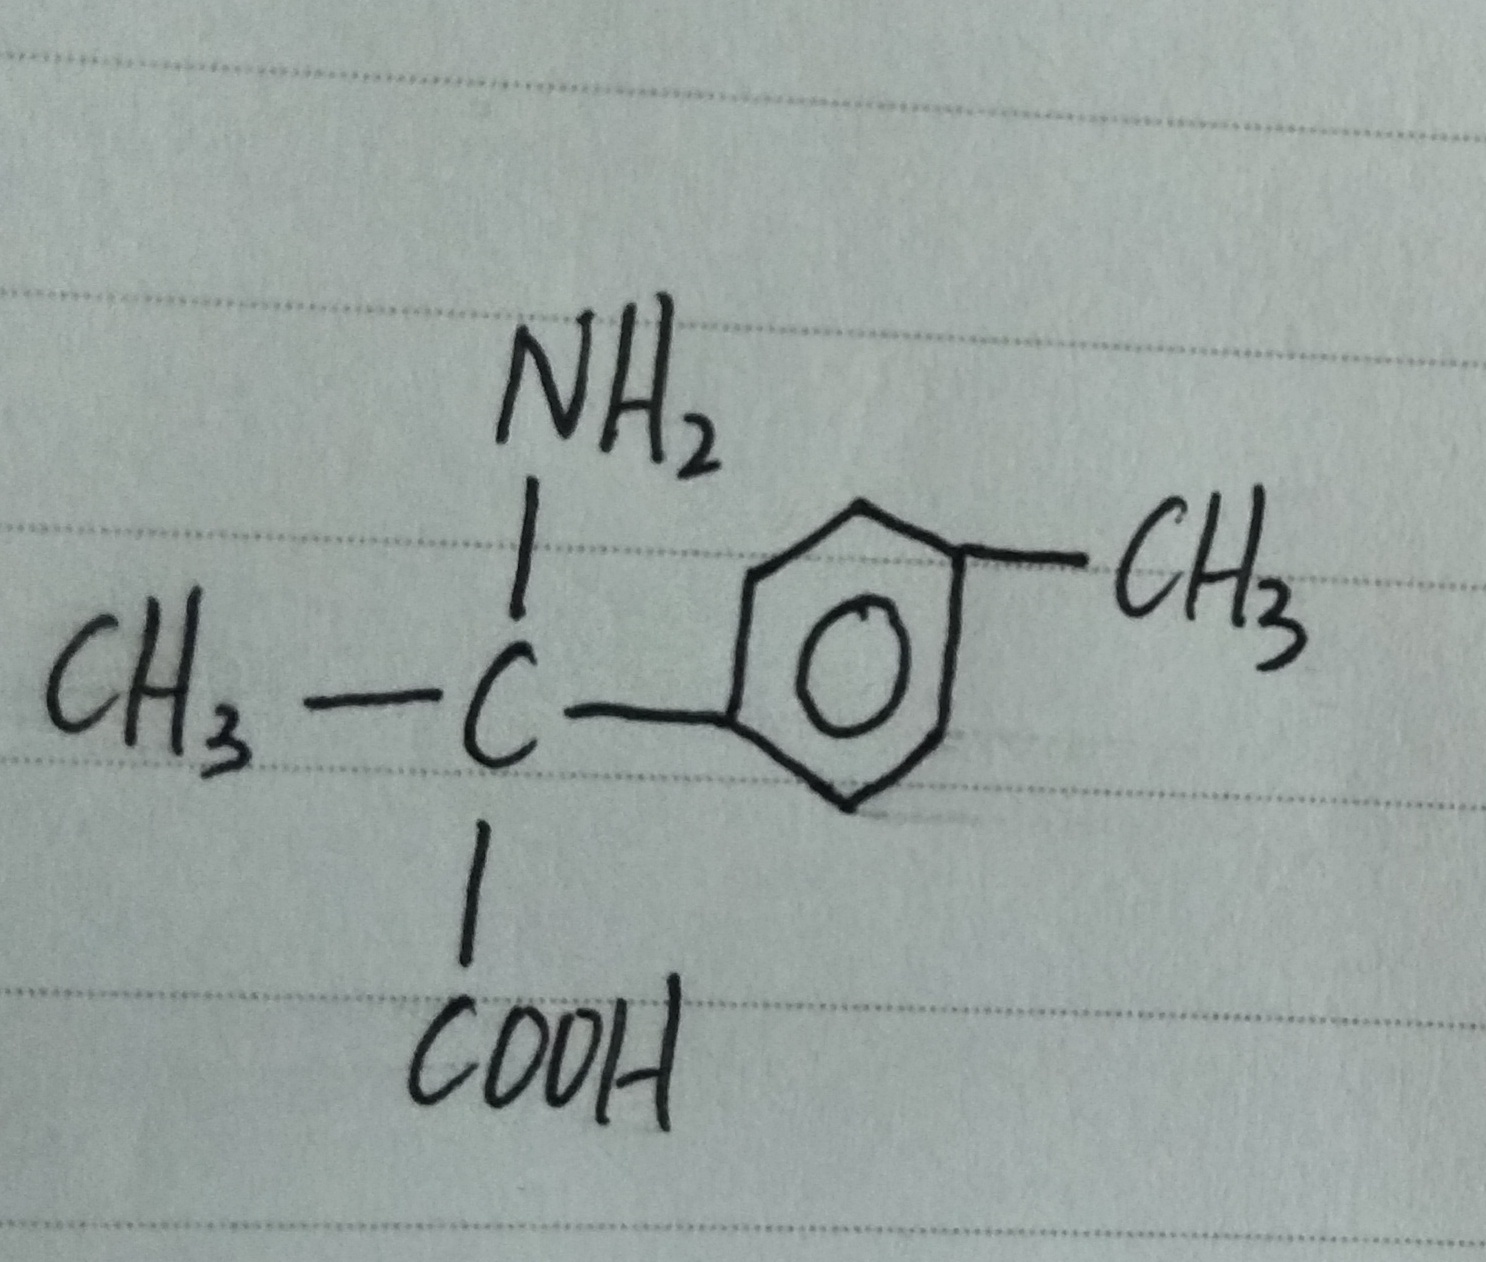 NH₂
CH₃
CH₃ — C
COOH